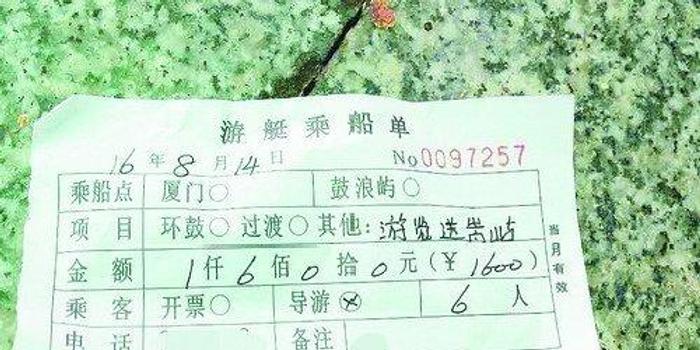 游艇乘船单
16年8月14日 No0097257
乘船点 厦门○ 鼓浪屿○
项目 环鼓○ 过渡○ 其他：游览送嵩屿
金额 1仟6佰0拾0元(￥1600)
乘客 开票○ 导游⊗ 6人
电话 备注
当月有效